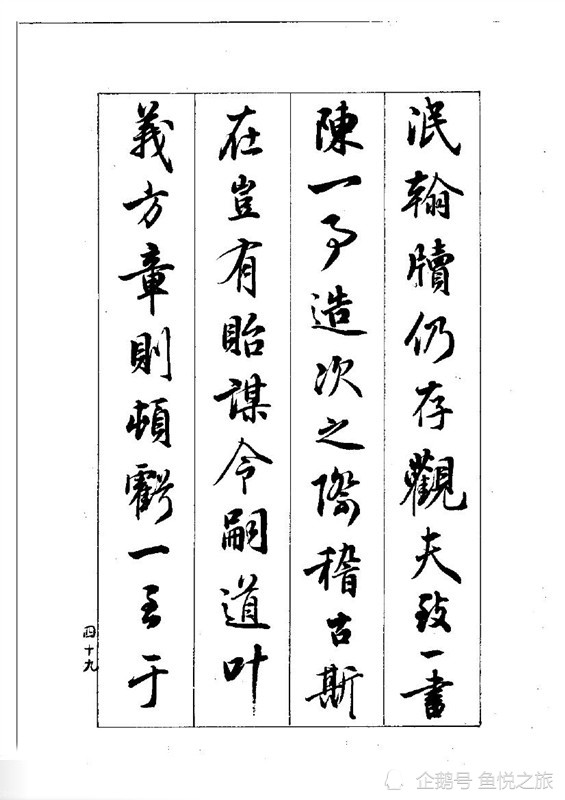 泯翰牘仍存觀夫致一書
陳一事造次之際稽古斯
在豈有貽謀令嗣道叶
義方章則頓虧一至于
四十九
企鹅号 鱼悦之旅